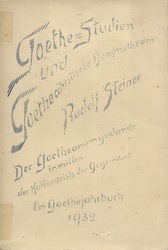 Goethe=Studien
und
Goetheanistische Denkmethoden
Rudolf Steiner
Der Goetheanumgedanke
inmitten
der Kulturkrisis der Gegenwart
Ein Goethejahrbuch
1932